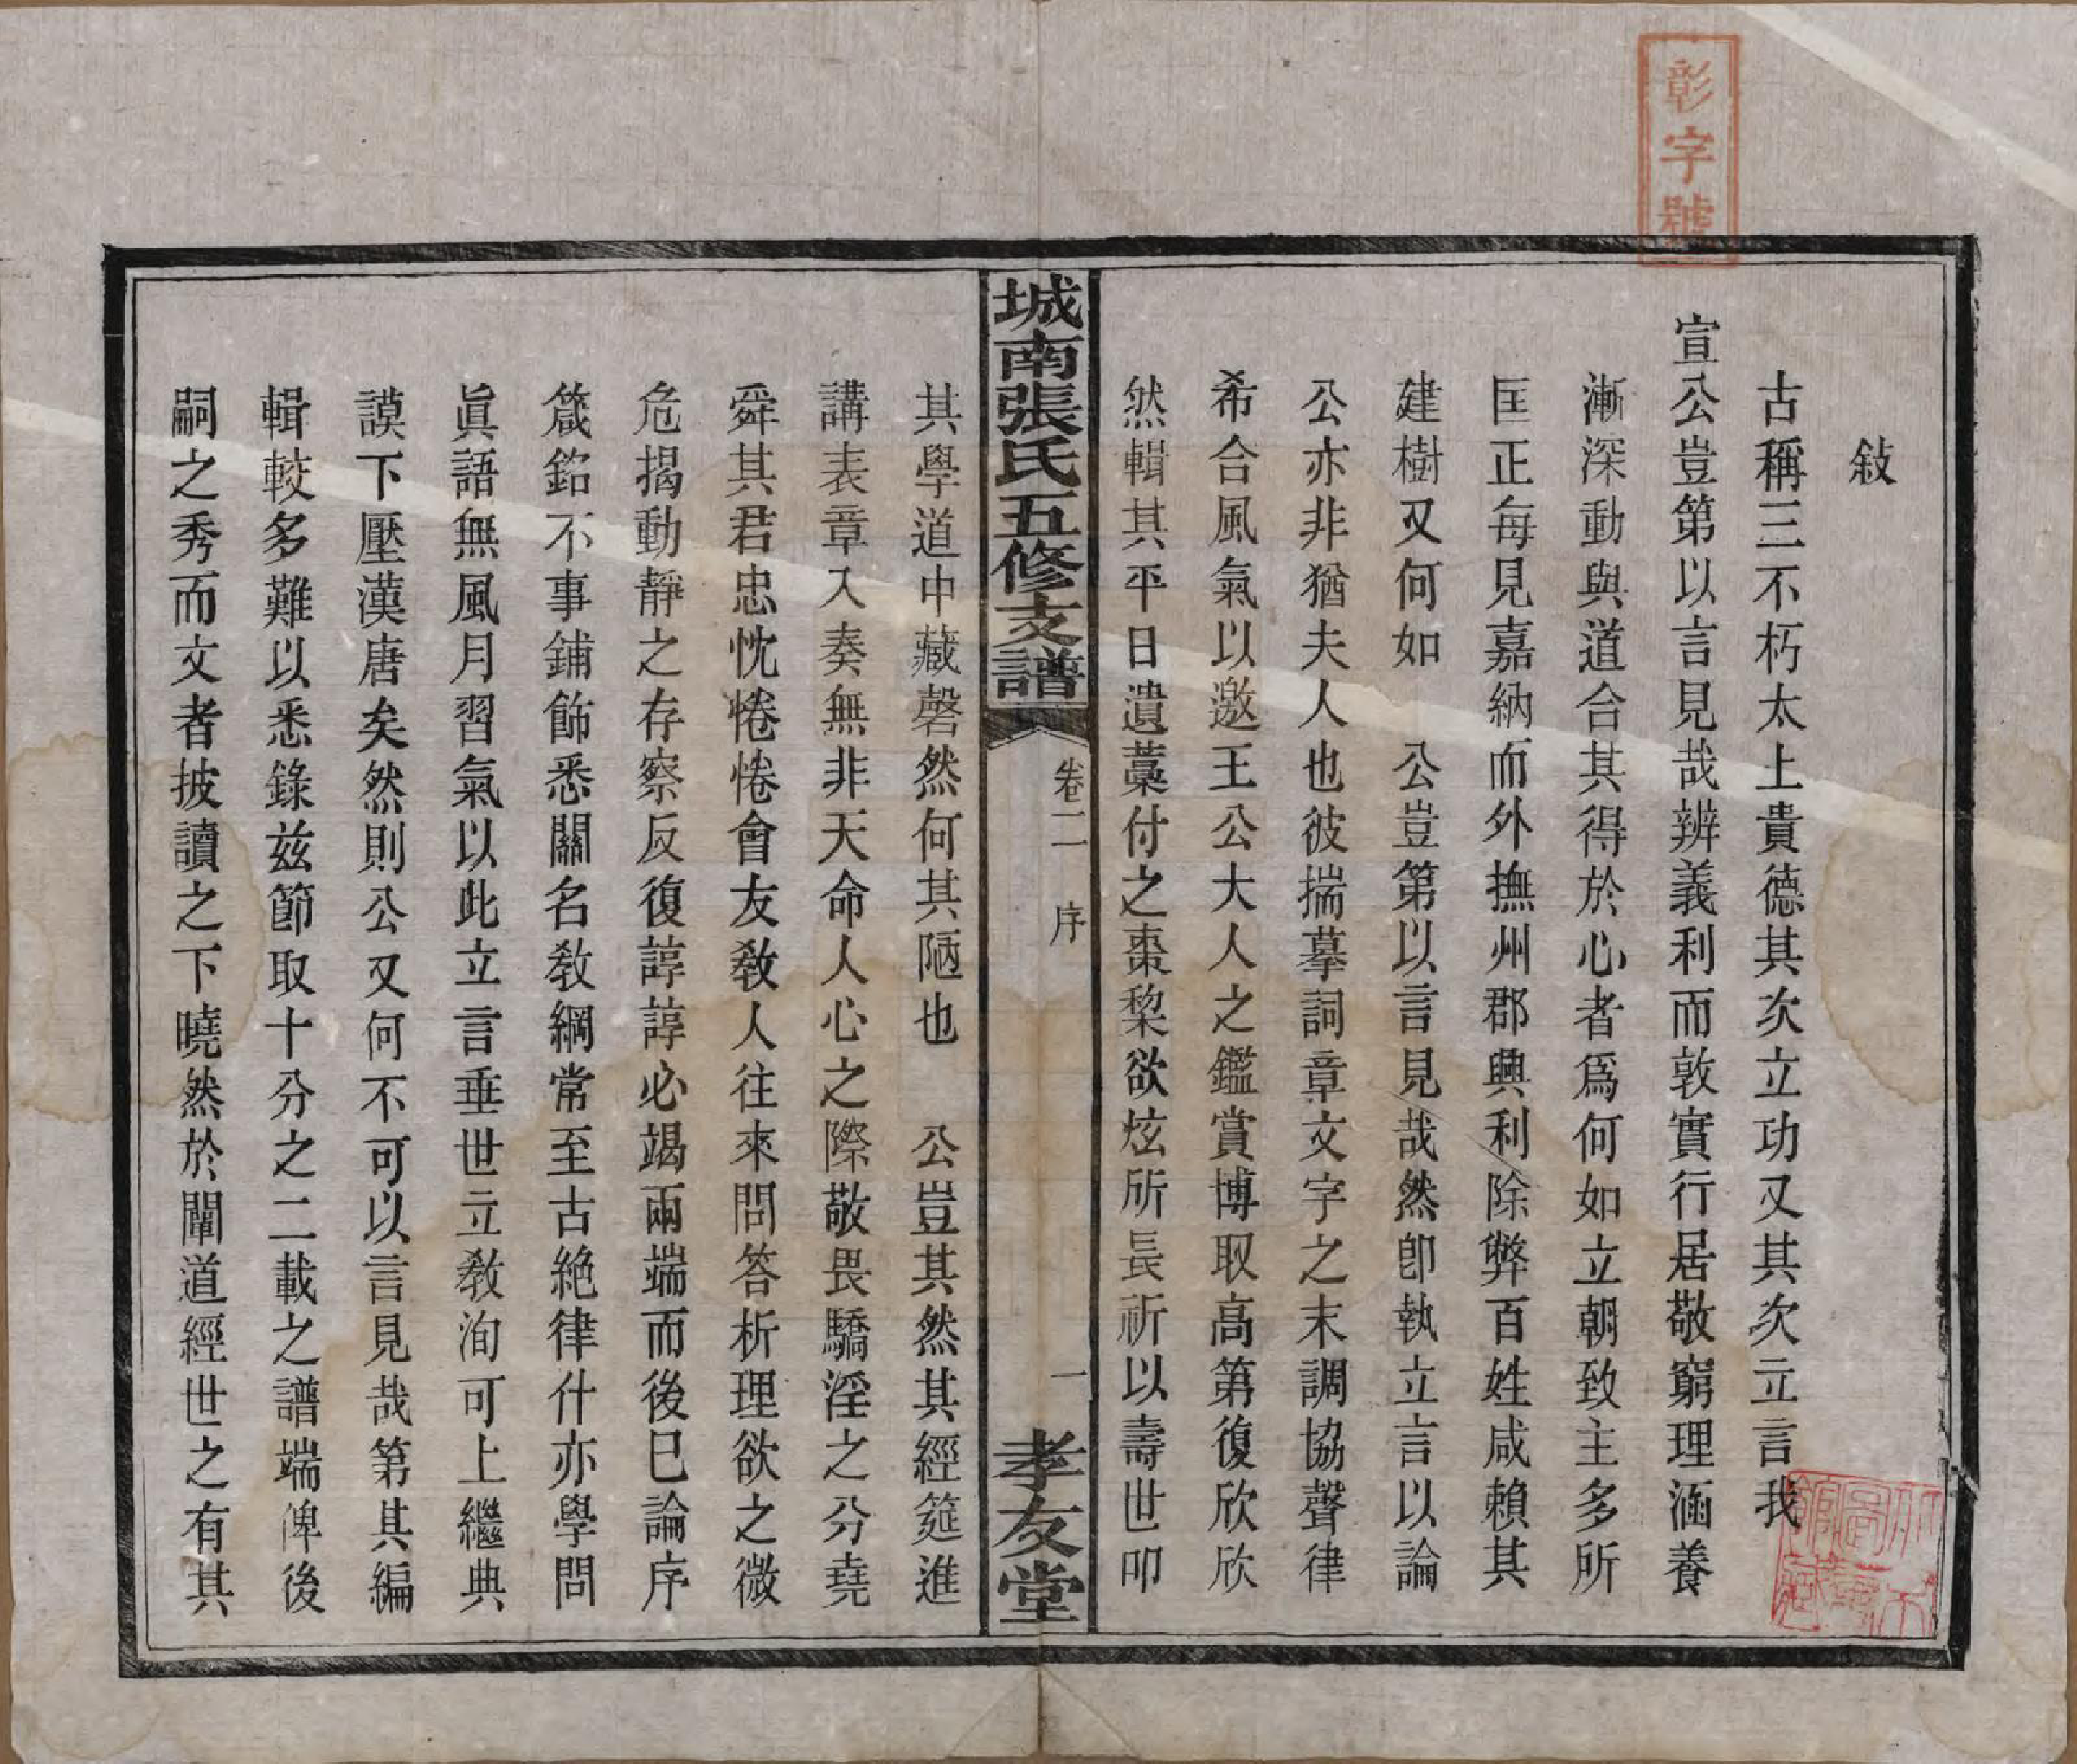 彰字號
敍
古稱三不朽太上貴德其次立功又其次立言我
宣公豈第以言見哉辨義利而敦實行居敬窮理涵養
漸深動與道合其得於心者爲何如立朝致主多所
匡正每見嘉納而外撫州郡興利除弊百姓咸賴其
建樹又何如　公豈第以言見哉然卽執立言以論
公亦非猶夫人也彼揣摹詞章文字之末調協聲律
希合風氣以邀王公大人之鑑賞博取高第復欣欣
然輯其平日遺藁付之棗棃欲炫所長祈以壽世叩
城南張氏五修支譜
卷二　序
一
孝友堂
其學道中藏磬然何其陋也　公豈其然其經筵進
講表章入奏無非天命人心之際敬畏驕淫之分堯
舜其君忠忱惓惓會友敎人往來問答析理欲之微
危揭動靜之存察反復諄諄必竭兩端而後已論序
箴銘不事鋪飾悉關名敎綱常至古絶律什亦學問
眞語無風月習氣以此立言垂世立敎洵可上繼典
謨下壓漢唐矣然則公又何不可以言見哉第其編
輯較多難以悉錄玆節取十分之二載之譜端俾後
嗣之秀而文者披讀之下曉然於闡道經世之有其